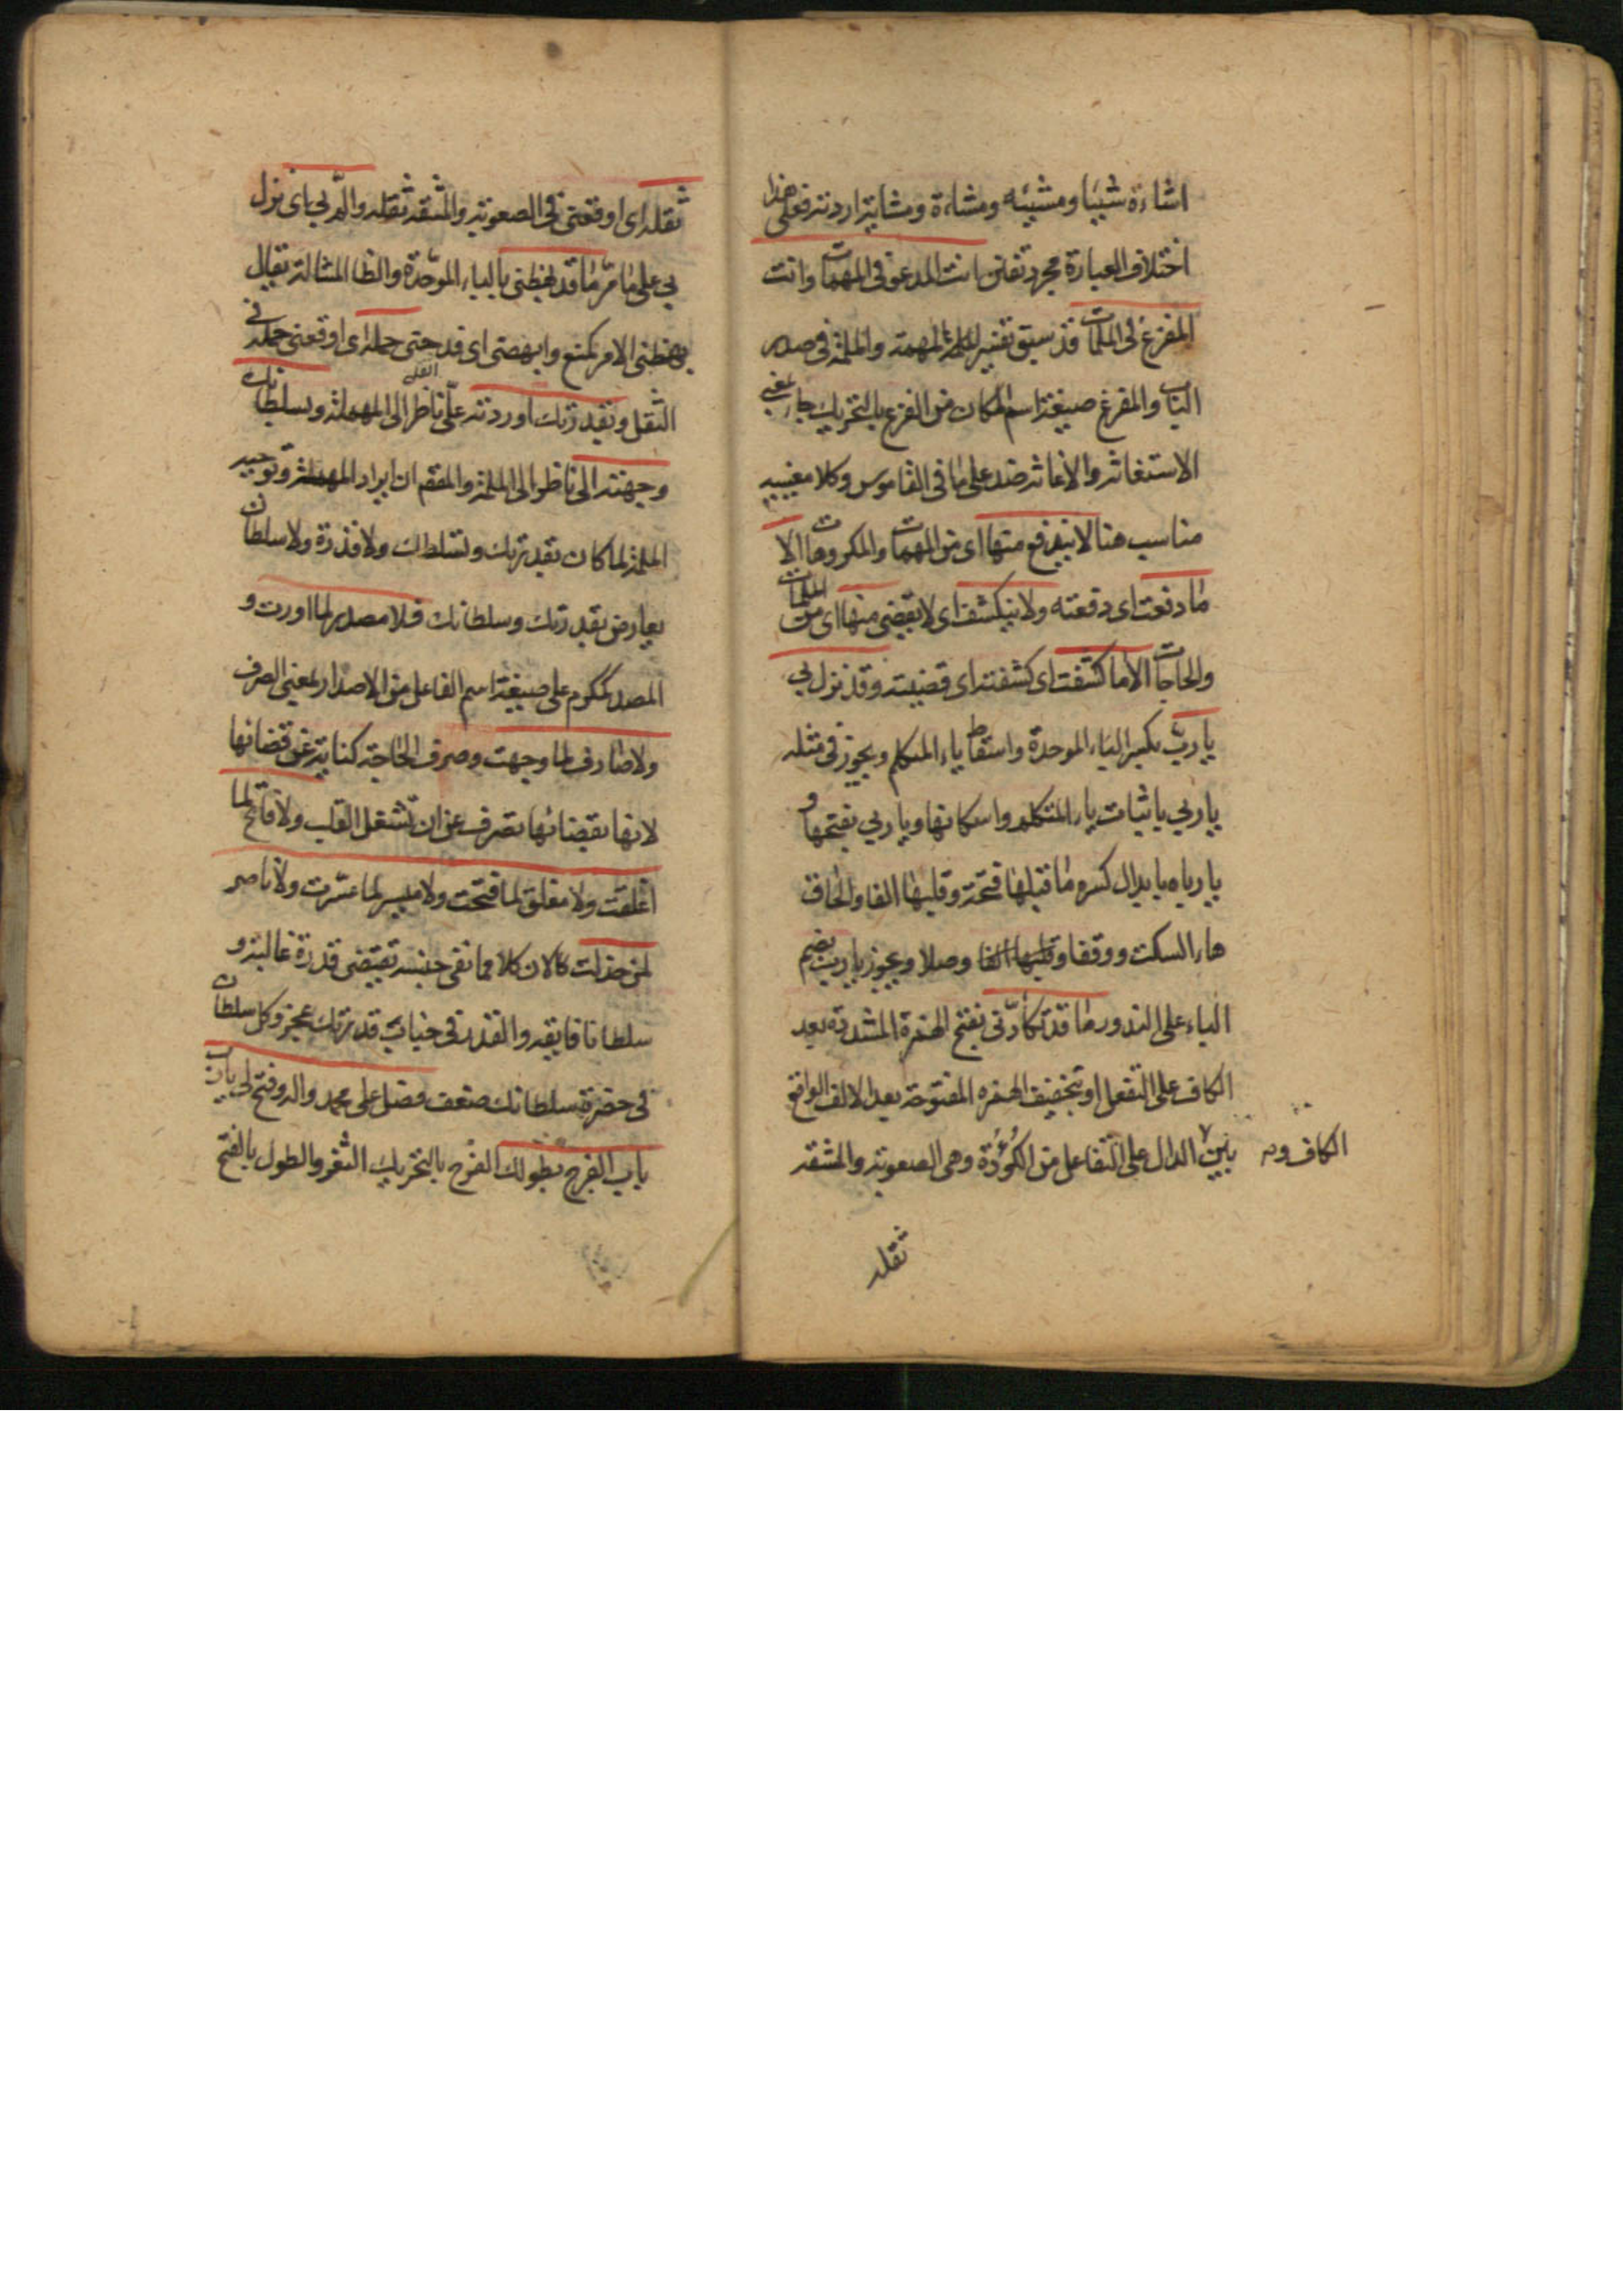 اشاءة شيئا ومشيئه ومشاءة ومشاية اردته فعلى هذا
اختلاف العبارة مجرد تفنن انت المدعو فى المهمات وانت
المفزع فى الملمات قد سبق تفسير المهمة والملمة فى صدر
الباب والمفزع صيغة اسم المكان من الفزع بالتحريك جاء بمعنى
الاستغاثه والاغاثه ضد على ما فى القاموس وكلا معنييه
مناسب هنا لا يندفع منها اى من المهمات والمكروهات الا
ما دفعت اى دفعته ولا ينكشف اى لا يقضى منها اى من الملمات
والحاجات الا ما كشفت اى كشفته اى قضيته وقد نزل بى
يا رب بكسر الباء الموحدة واسقاط ياء المتكلم ويجوز فى مثله
يا ربى باثبات ياء المتكلم واسكانها ويا ربى بفتحها و
يا رباه بابدال كسره ما قبلها فتحة وقلبها الفا والحاق
هاء السكت ووقفا وقلبها الفا وصلا ويجوز يا رب بضم
الباء على الندور ما قد تكأدنى بفتح الهمزة المشددة بعد
الكاف على التفعل او بتخفيف الهمزه المفتوحة بعد الالف الواقع
بين الدال على التفاعل من الكؤدة وهى الصعوبة والمشقه
الكاف و
ثقله
ثقله اى اوقعنى فى الصعوبة والمشقه ثقله والم بى اى نزل
بى على ما مر ما قد بهظنى بالباء الموحدة والظا المشالة يقال
بهظنى الامر كمنع وابهضنى اى فدحنى حمله اى اوقعنى حمله فى
الثقل وبقدرتك اوردته على ناظر الى المهملة وبسلطانك
وجهته الى ناظر الى الملمة والمقم ان ايراد المهملة وتوجيه
الملمة لما كان بقدرتك وبسلطانك ولا قدرة ولا سلطان
يعارض بقدرتك وسلطانك فلا مصدر لما اوردت و
المصدر كمكرم على صيغة اسم الفاعل من الاصدار بمعنى الصرف
ولا صارف لما وجهت وصرف الحاجة كناية عن قضائها
لانها بقضائها تصرف عن ان تشغل القلب ولا فاتح لما
اغلقت ولا مغلق لما فتحت ولا ميسر لما عسرت ولا ناصر
لمن خذلت كالان كلا مما نفى جنسه تقتضى قدرة غالبة و
سلطانا فايقه والقدر فى جناب قدرتك عجز وكل سلطان
فى حضرة سلطانك ضعف فصل على محمد واله وفتح لى يا رب
باب الفرج بطولك الفرج بالتحريك الثغر والطول بالفتح